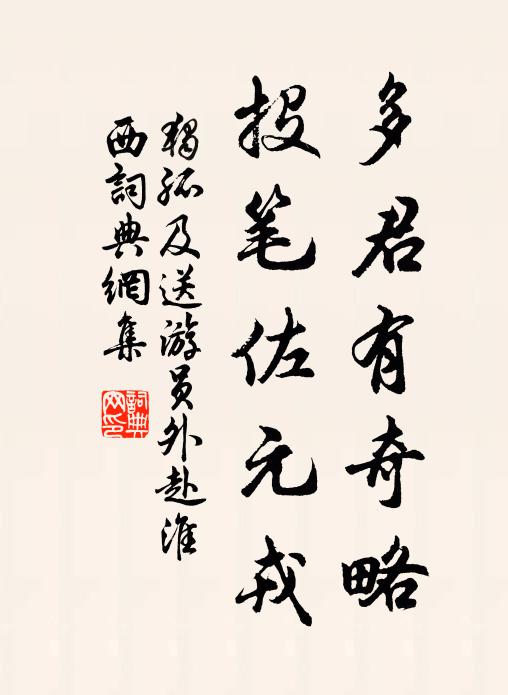 多君有奇略
投笔佐元戎
独孤及送游员外赴淮
西词典網集
詞典網印